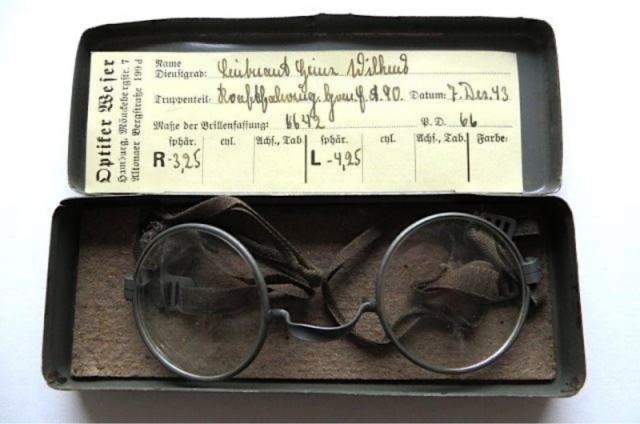 Optiker Weser
Hamburg, Mönckebergstr. 7
Altonaer Bergstraße 199d
Name
Dienstgrad: Leutnant Heinz
Truppenteil: Datum: 7. Dez. 43
Maße der Brillenfassung: 6642 P. D. 66
sphär. cyl. Achs., Tab. sphär. cyl. Achs., Tab. Farbe:
R -3,25 L -4,25